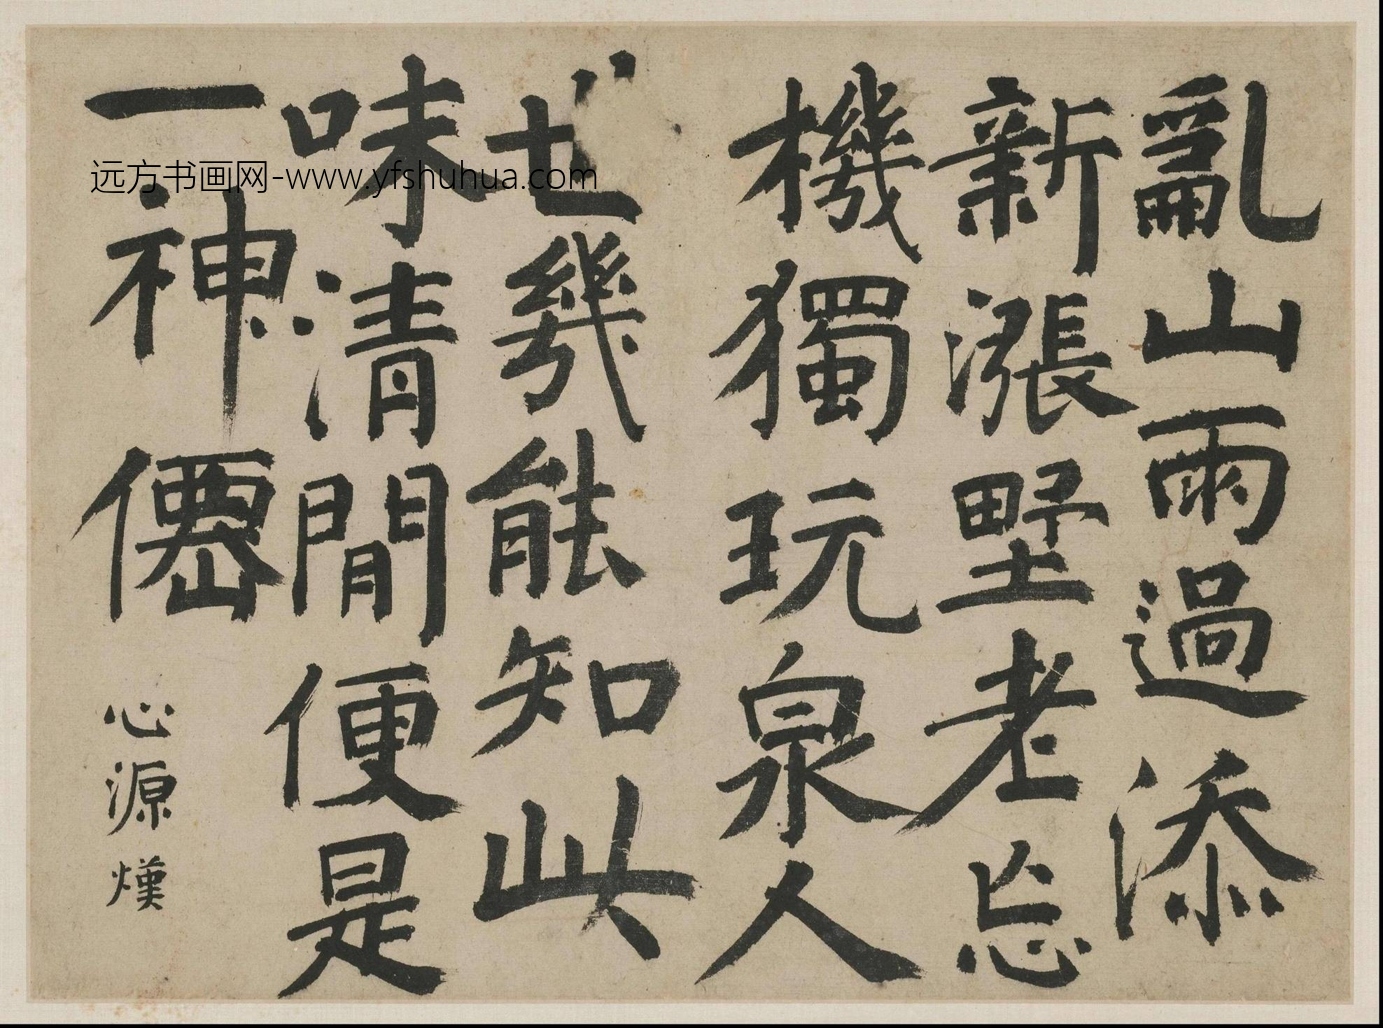 亂山雨過添
新漲墅老忘
機獨玩泉人
世幾能知此
味清閒便是
一神僊
心源熯
远方书画网-www.yfshuhua.com